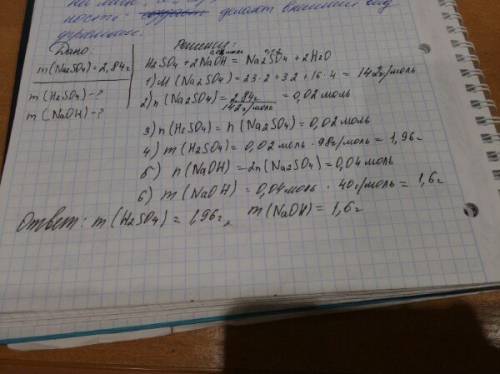 делают внешний вид
Дано:
Решение:
m(Na2SO4)=2,84г
m(H2SO4)-?
m(NaOH)-?
H2SO4+2NaOH = Na2SO4+2H2O
1) M(Na2SO4)=23·2+32+16·4=142г/моль
2) n(Na2SO4)=2,84г/142г/моль=0,02моль
3) n(H2SO4)=n(Na2SO4)=0,02моль
4) m(H2SO4)=0,02моль·98г/моль=1,96г
5) n(NaOH)=2n(Na2SO4)=0,04моль
6) m(NaOH)=0,04моль·40г/моль=1,6г
Ответ: m(H2SO4)=1,96г, m(NaOH)=1,6г